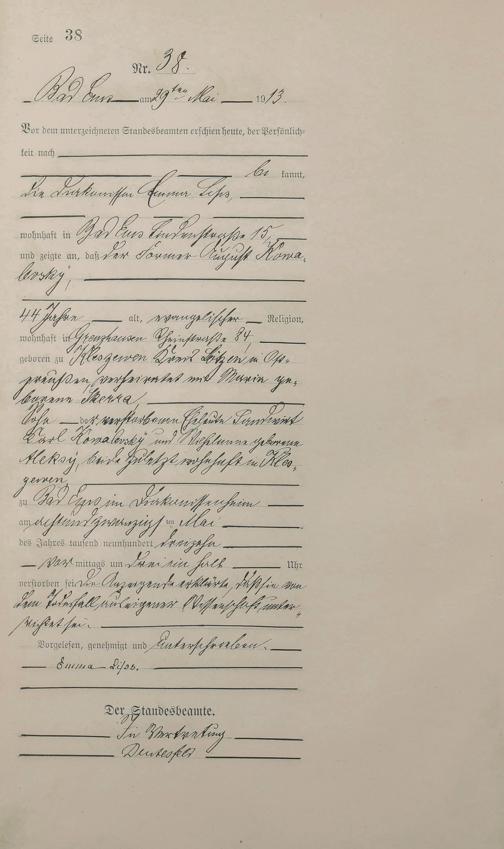 Seite 38
Nr. 38.
Bad Ems am 29ten Mai 1913.
Vor dem unterzeichneten Standesbeamten erschien heute, der Persönlich-
keit nach
be kannt,
die Diakonissin Emma
wohnhaft in Bad Ems Lindenstraße 15,
und zeigte an, daß der Former August Kowa-
levsky,
44 Jahre alt, evangelischer Religion,
wohnhaft in Grenzhausen Rheinstraße 84,
geboren zu Kreis in Ost-
preußen, verheiratet mit Maria ge-
borene
Sohn der verstorbenen Eheleute Landwirt
Karl Kowalevsky und geborene
beide zuletzt wohnhaft in
zu Bad Ems im Diakonissenheim
am achtundzwanzigsten Mai
des Jahres tausend neunhundert dreizehn
Vor mittags um drei ein halb Uhr
verstorben sei. Die Anzeigende erklärte, daß sie von
dem Todesfall aus eigener Wissenschaft unter-
richtet sei.
Vorgelesen, genehmigt und unterschrieben.
Emma
Der Standesbeamte.
In Vertretung